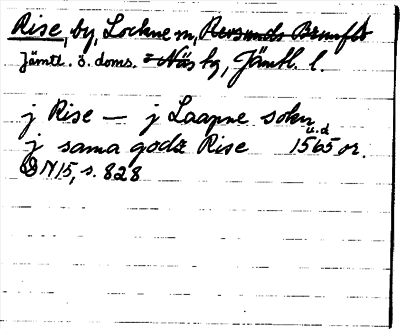 Rise, by, Lockne sn, Revsunds Brunflo
Jämtl. ö. doms. = Näs hg, Jämtl. l.
j Rise — j Laapne sokn
j sama godz Rise 1565 u.d or.
DN 15, s. 828